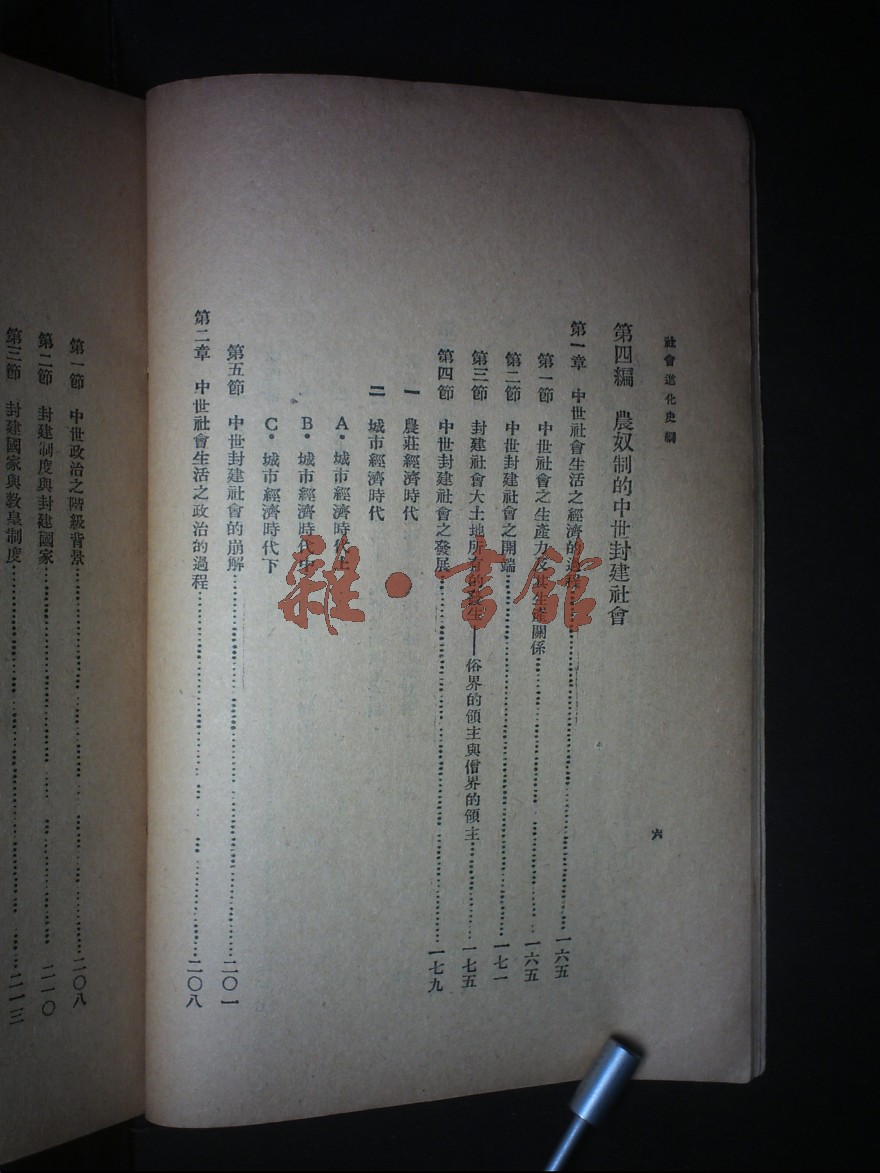 社會進化史綱
六
第四編　農奴制的中世封建社會
第一章　中世社會生活之經濟的過程……一六五
第一節　中世社會之生產力及其生產關係……一六五
第二節　中世封建社會之開端……一七一
第三節　封建社會大土地所有的發生——俗界的領主與僧界的領主……一七五
第四節　中世封建社會之發展……一七九
一　農莊經濟時代
二　城市經濟時代
A・城市經濟時代上
B・城市經濟時代中
C・城市經濟時代下
第五節　中世封建社會的崩解……二〇一
第二章　中世社會生活之政治的過程……二〇八
第一節　中世政治之階級背景……二〇八
第二節　封建制度與封建國家……二一〇
第三節　封建國家與教皇制度……二一三
雜・書館